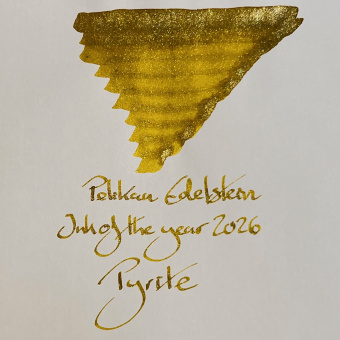 Pelikan Edelstein
Ink of the year 2026
Pyrite